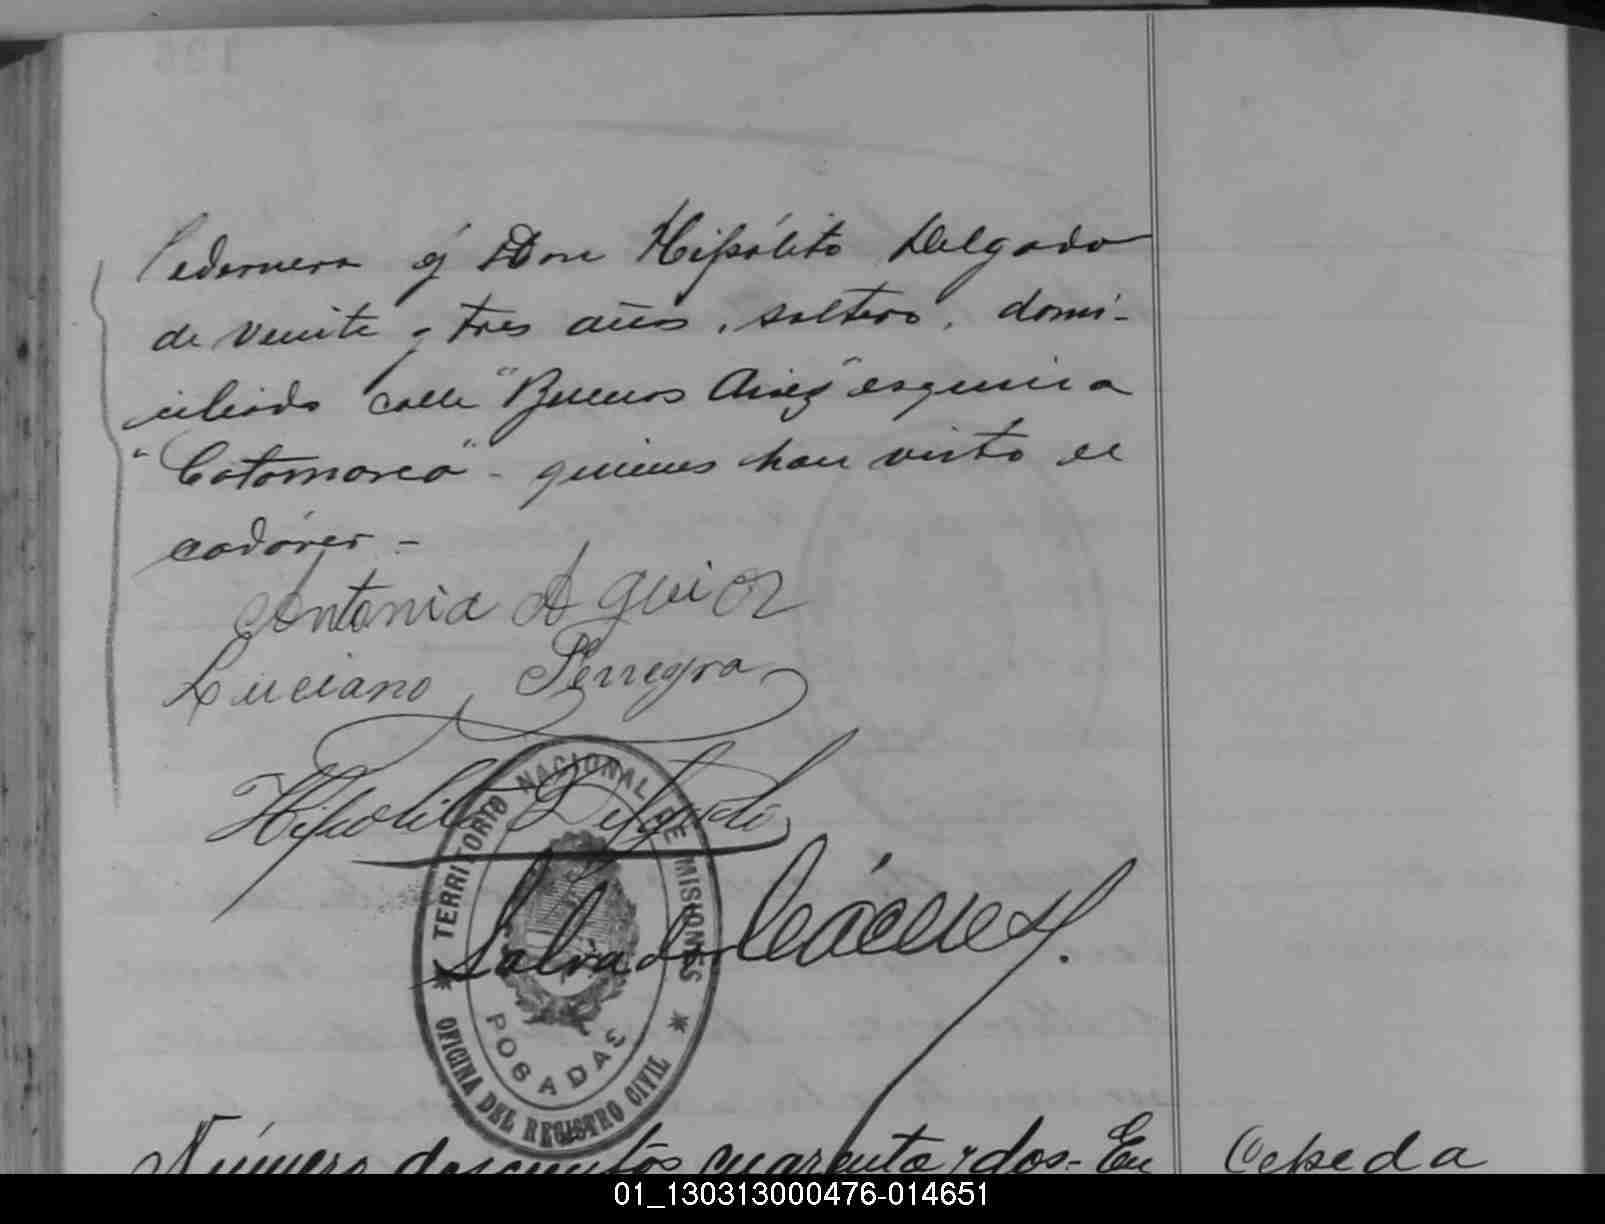 Pedernera y Don Hipólito Delgado
de veinte y tres años, soltero, domi-
ciliado calle "Buenos Aires" esquina
"Catamarca" - quienes han visto el
cadáver -
Antonia Aguiar
Luciano
Hipolito Delgado
TERRITORIO NACIONAL DE MISIONES
Salvador
POSADAS
OFICINA DEL REGISTRO CIVIL
Número doscientos cuarenta y dos - En
Cepeda
01_130313000476-014651